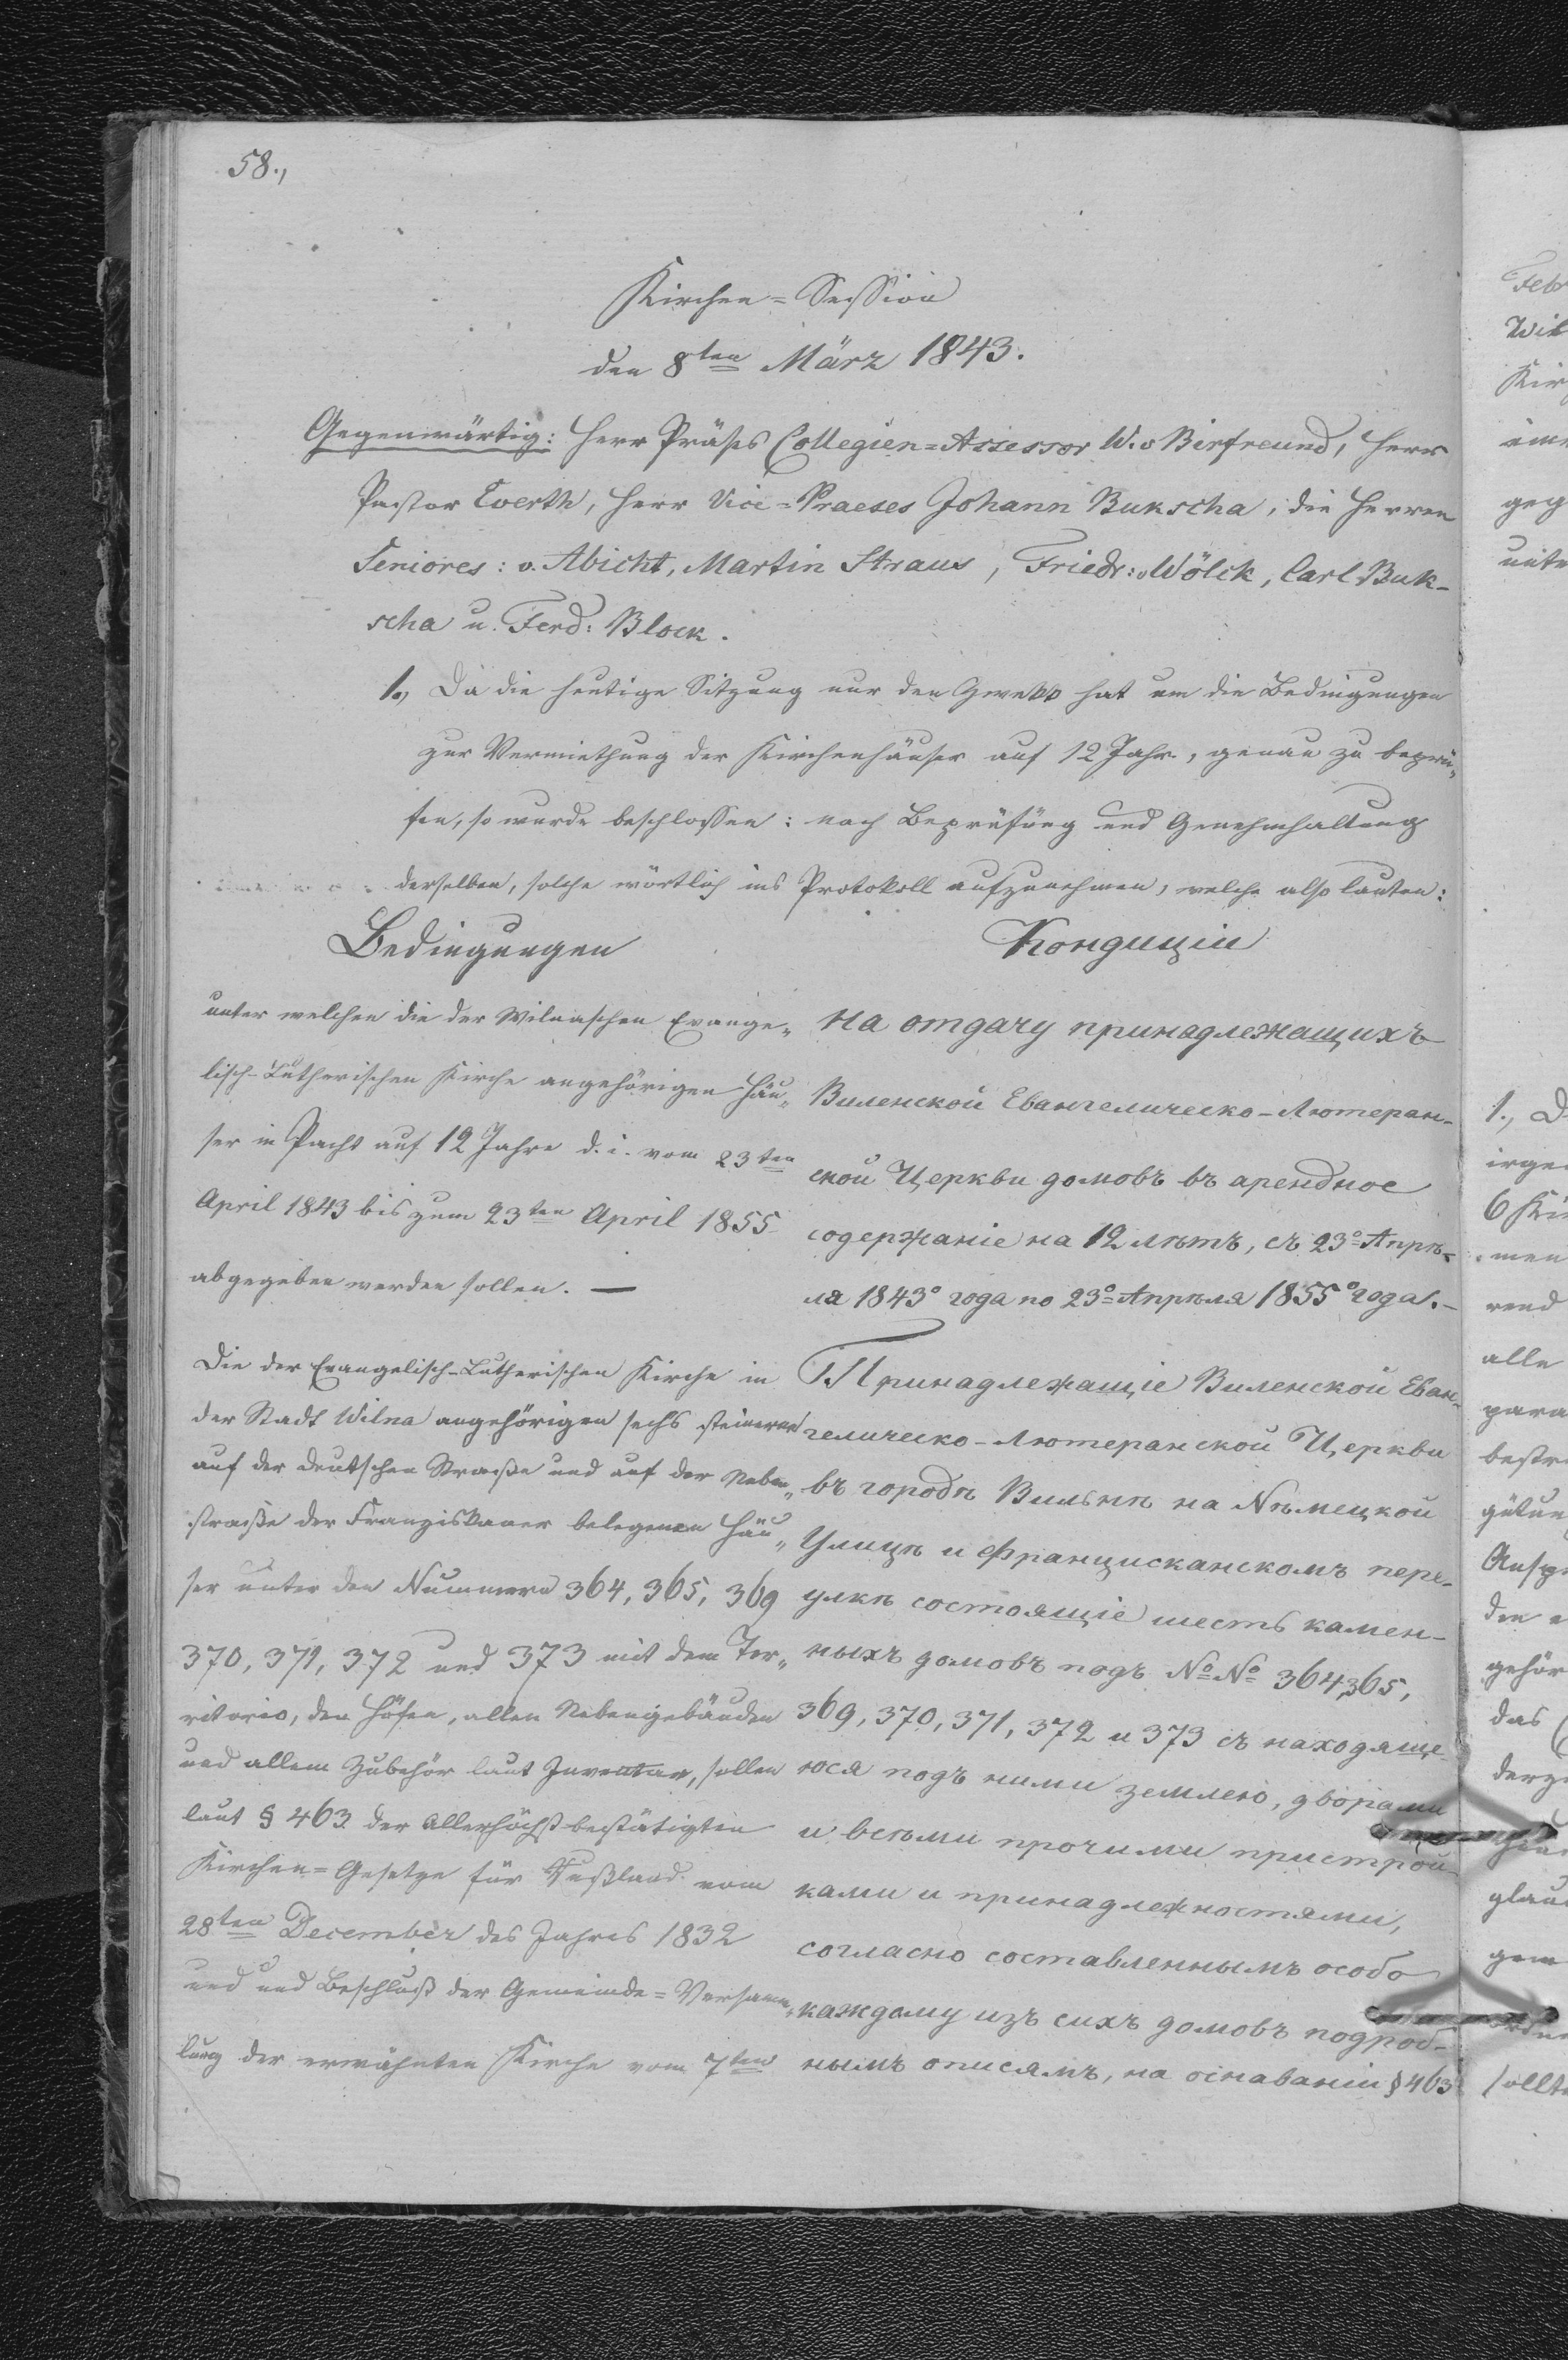 58.,
Kirchen=Session
den 8ten März 1843.
Gegenwärtig: Herr Präses Collegien=Assessor W. v Birfreund, Herr
Pastor Everth, Herr Vice=Praeses Johann Bukscha, die Herren
Seniores: v. Abicht, Martin Straus, Friedr: Wölck, Carl Buk-
scha u. Ferd: Block.
1., Da die heutige Sitzung nur den Zweck hat um die Bedingungen
zur Vermiethung der Kirchenhäuser auf 12 Jahr., genau zu beprü„
fen, so wurde beschlossen: nach Beprüfung und Genehmhaltung
derselben, solche wörtlich ins Protokoll aufzunehmen, welche also lauten:
Bedingungen
unter welchen die der Wilnaschen Evange„
lisch-Lutherischen Kirche angehörigen Häu„
ser in Pacht auf 12 Jahre d. i. vom 23ten
April 1843 bis zum 23ten April 1855
abgegeben werden sollen. —
Die der Evangelisch-Lutherischen Kirche in
der Stadt Wilna angehörigen sechs steinerne
auf der deutschen Strasse und auf der Neben„
strasse der Franziskaner belegenen Häu„
ser unter den Nummern 364, 365, 369
370, 371, 372 und 373 mit dem Ter„
ritorio, den Höfen, allen Nebengebäuden
und allem Zubehör laut Inventar, sollen
laut § 463 der Allerhöchst bestätigten
Kirchen=Gesetze für Rußland vom
28ten December des Jahres 1832
und und Beschluß der Gemeinde=Versamm„
lung der erwähnten Kirche vom 7ten
Кондиціи
на отдачу принадлежащихъ
Виленской Евангелическо-Лютеран-
ской Церкви домовъ въ арендное
содержаніе на 12 лѣтъ, съ 23о Апрѣ-
ля 1843о года по 23о Апрѣля 1855о года.—
Принадлежащіе Виленской Еван-
гелическо-Лютеранской Церкви
въ городѣ Вильнѣ на Нѣмецкой
Улицѣ и Францисканскомъ пере-
улкѣ состоящіе шесть камен-
ныхъ домовъ подъ №№ 364, 365,
369, 370, 371, 372 и 373 съ находяще-
юся подъ ними землею, дворами
и всѣми прочими пристрой-
ками и принадлежностями,
согласно составленнымъ особо
каждому изъ сихъ домовъ подроб-
нымъ описямъ, на оснаваніи § 463
Febr
Wil
Kir
geg
unte
1., D
6 Ki
men
rend
alle
para
bestr
gütun
gehör
das
glau
gem
sollt